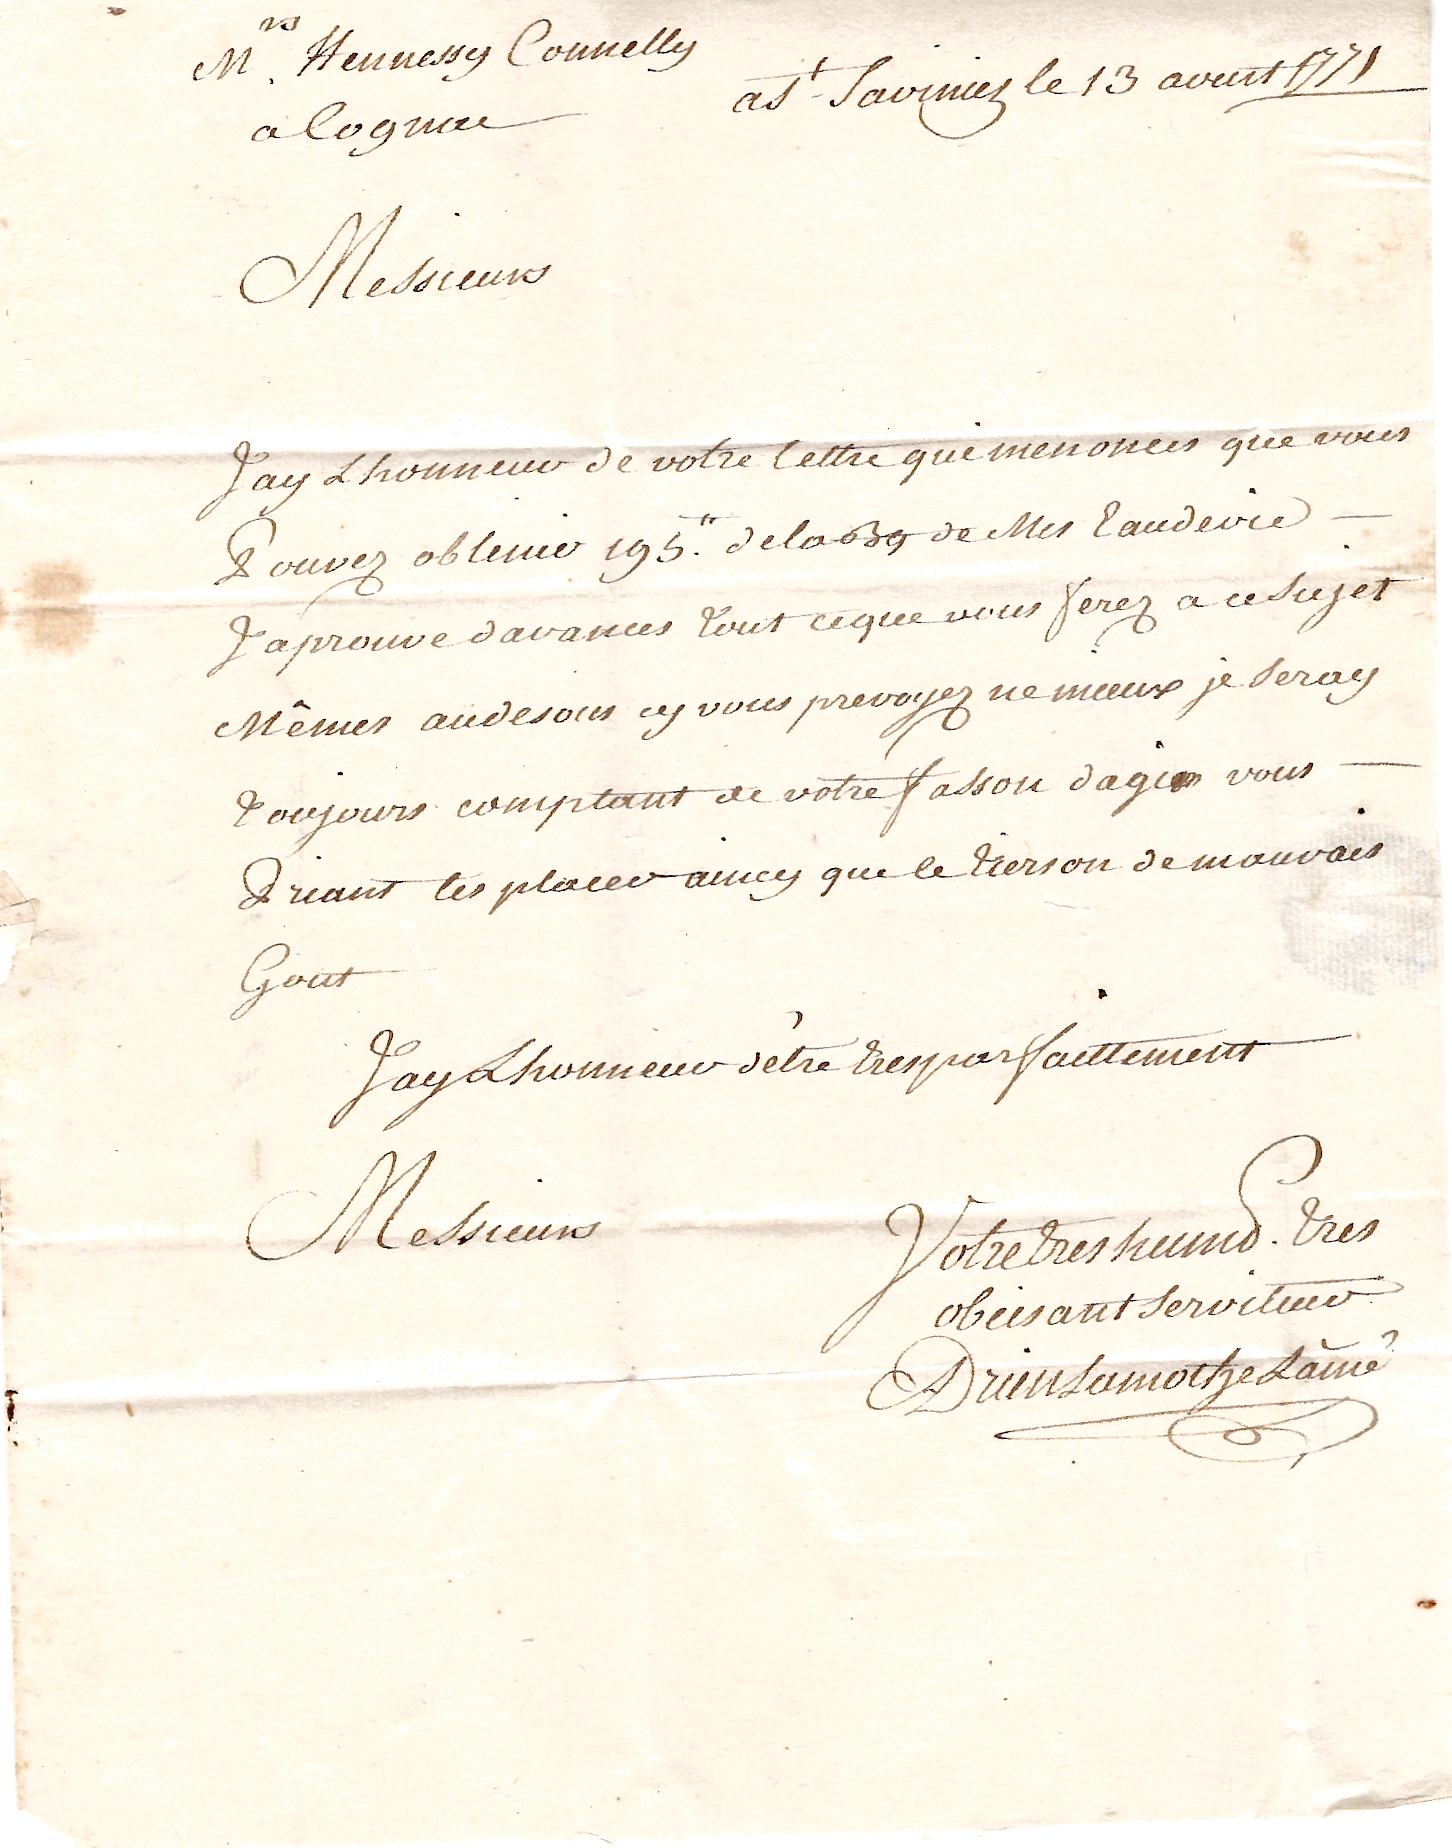 Mrs. Hennessy Connelly
a Cognac
a St Saviniez le 13 aoust 1771
Messieurs
Jay Lhonneur de votre lettre qui menonces que vous
Pouvez obtenir 195.tt de la de Mes Eaudevie
Japrouve davances tout ceque vous ferez a ce sujet
Mêmes audesous cy vous prevoyez ne mieux je seray
toujours comptant de votre fasson dagir vous
Priant les placer aincy que le tierson de mauvais
Gout
Jay Lhonneur dêtre tresparfaittement
Messieurs
Votre tres humb. tres
obeisant serviteur
Lamothe Lainé